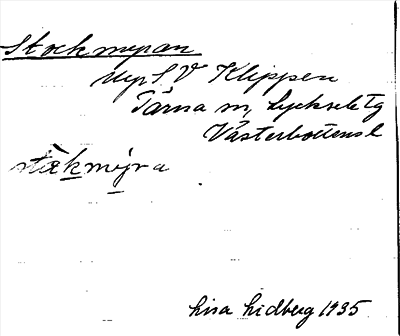 Stockmyran
myr S V Klippen
Tärna sn, Lycksele tg
Västerbottens l
stækmỳra
Lisa Lidberg 1935